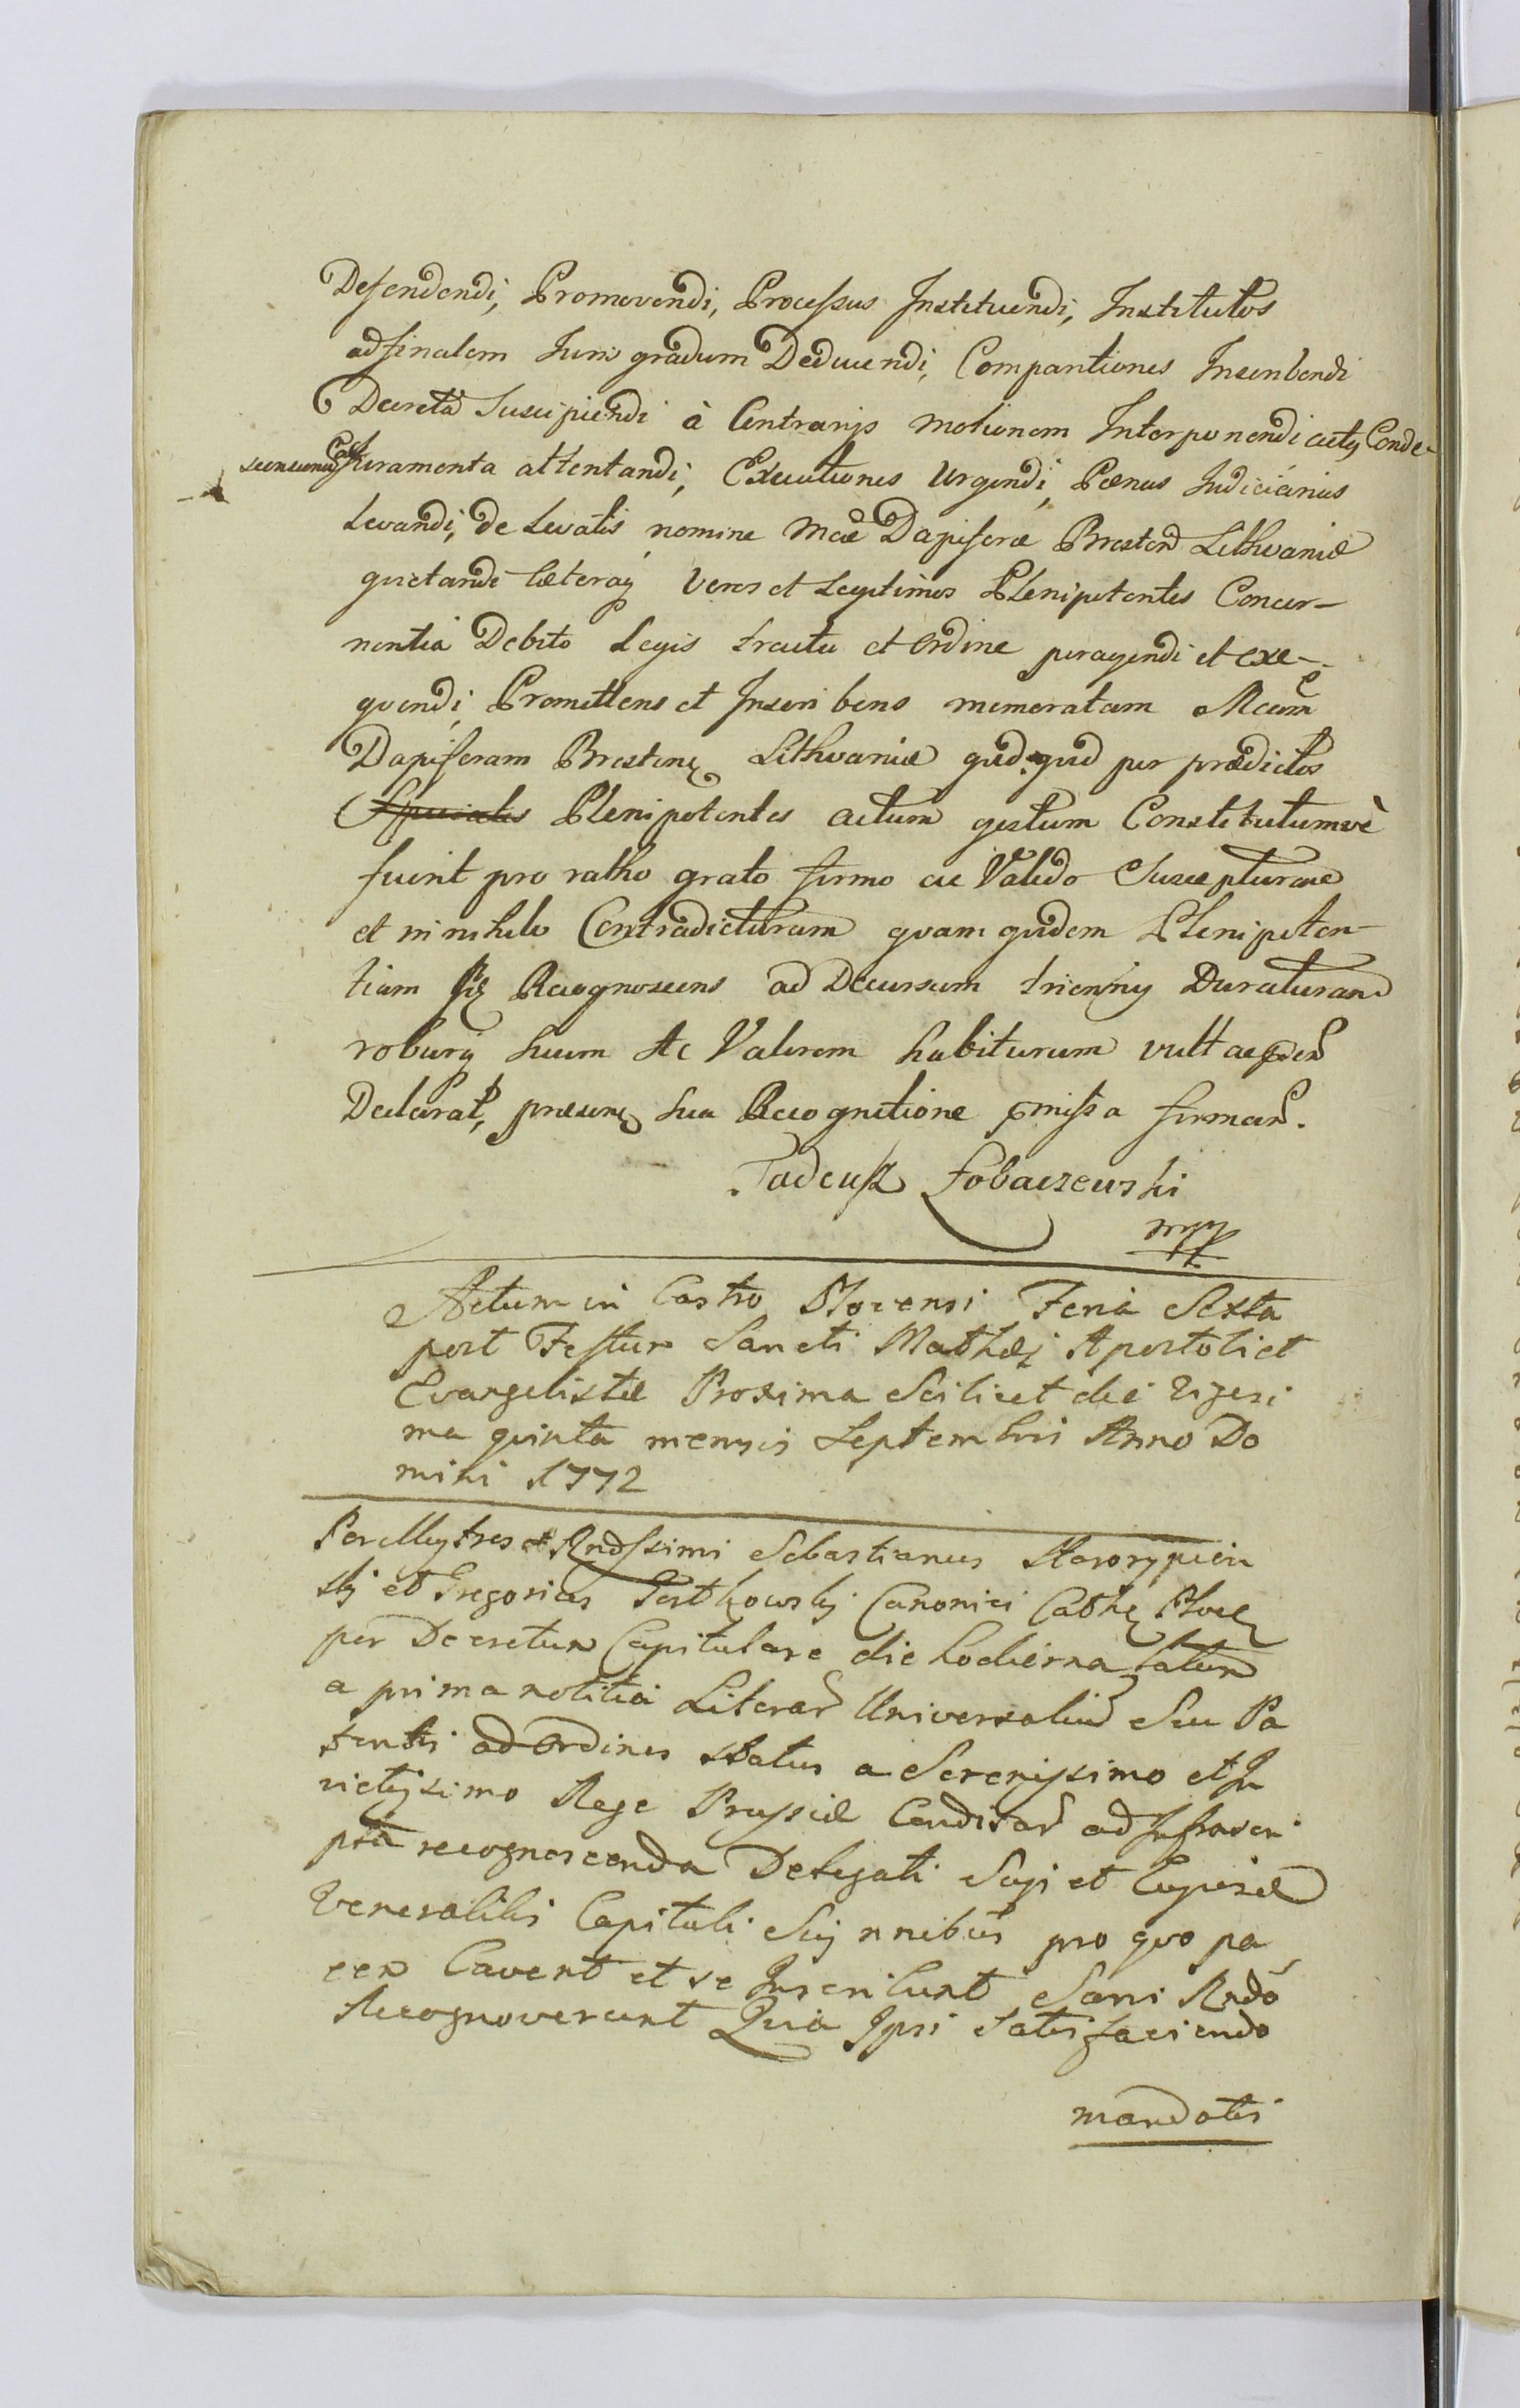 Defendendi, Promovendi, Processus Instituendi, Institutos
ad finalem Juris gradum Deducendi, Comparitiones Inscribendi
Decreta Suscipiendi à Contrarijs motionem Interponendi Conde-
Juramenta attentandi, Executiones Urgendi, Pœnas Judiciarias
Levandi, de Levatis nomine Mcæ Dapiferæ Bresten Lithvaniæ
quietandi Cæteraq Veros et Legitimos Plenipotentes Concer-
nentia Debito Legis tractu et Ordine peragendi et exe-
quendi, Promittens et Inscribens memoratam Mcam
Dapiferam Bresten Lithvaniæ quidquid per prædictos
Speciales Plenipotentes actum gestum Constitutumvè
fuerit pro ratho grato firmo ac Valido Suscepturam
et in nihilo Contradicturam quam quidem Plenipoten-
tiam Recognoscens ad Decursum trienny Duraturam
roburq suum Ac Valorem habiturum vult
Declarat, præsen sua Recognitione firman.
Tadeusz Łobaczewski
mpp
Actum in Castro Plocensi Feria Sexta
post Festum Sancti Mathæi Apostoli et
Evangelistæ Proxima Scilicet die Vigesi
ma quinta mensis Septembris Anno Do
mini 1772
Perillustres et Rndssimi Sebastianus Starorypin
skj et Gregorius Canonici Cathe Ploce
per Decretum Capitulare die hodierna latum
a prima notitia Literar Universalium Seu Pa
tentis ad Ordines status a Serenissimo et In
victissimo Rege Prussiæ Conditar ad Infrascri
pta recognoscenda Delegati Suji et
Venerabilis Capituli Suj nnibus pro quo pa
cem Cavent et se Inscribunt Sani
Recognoverunt Quia Ipsi Satisfaciendo
mandatis